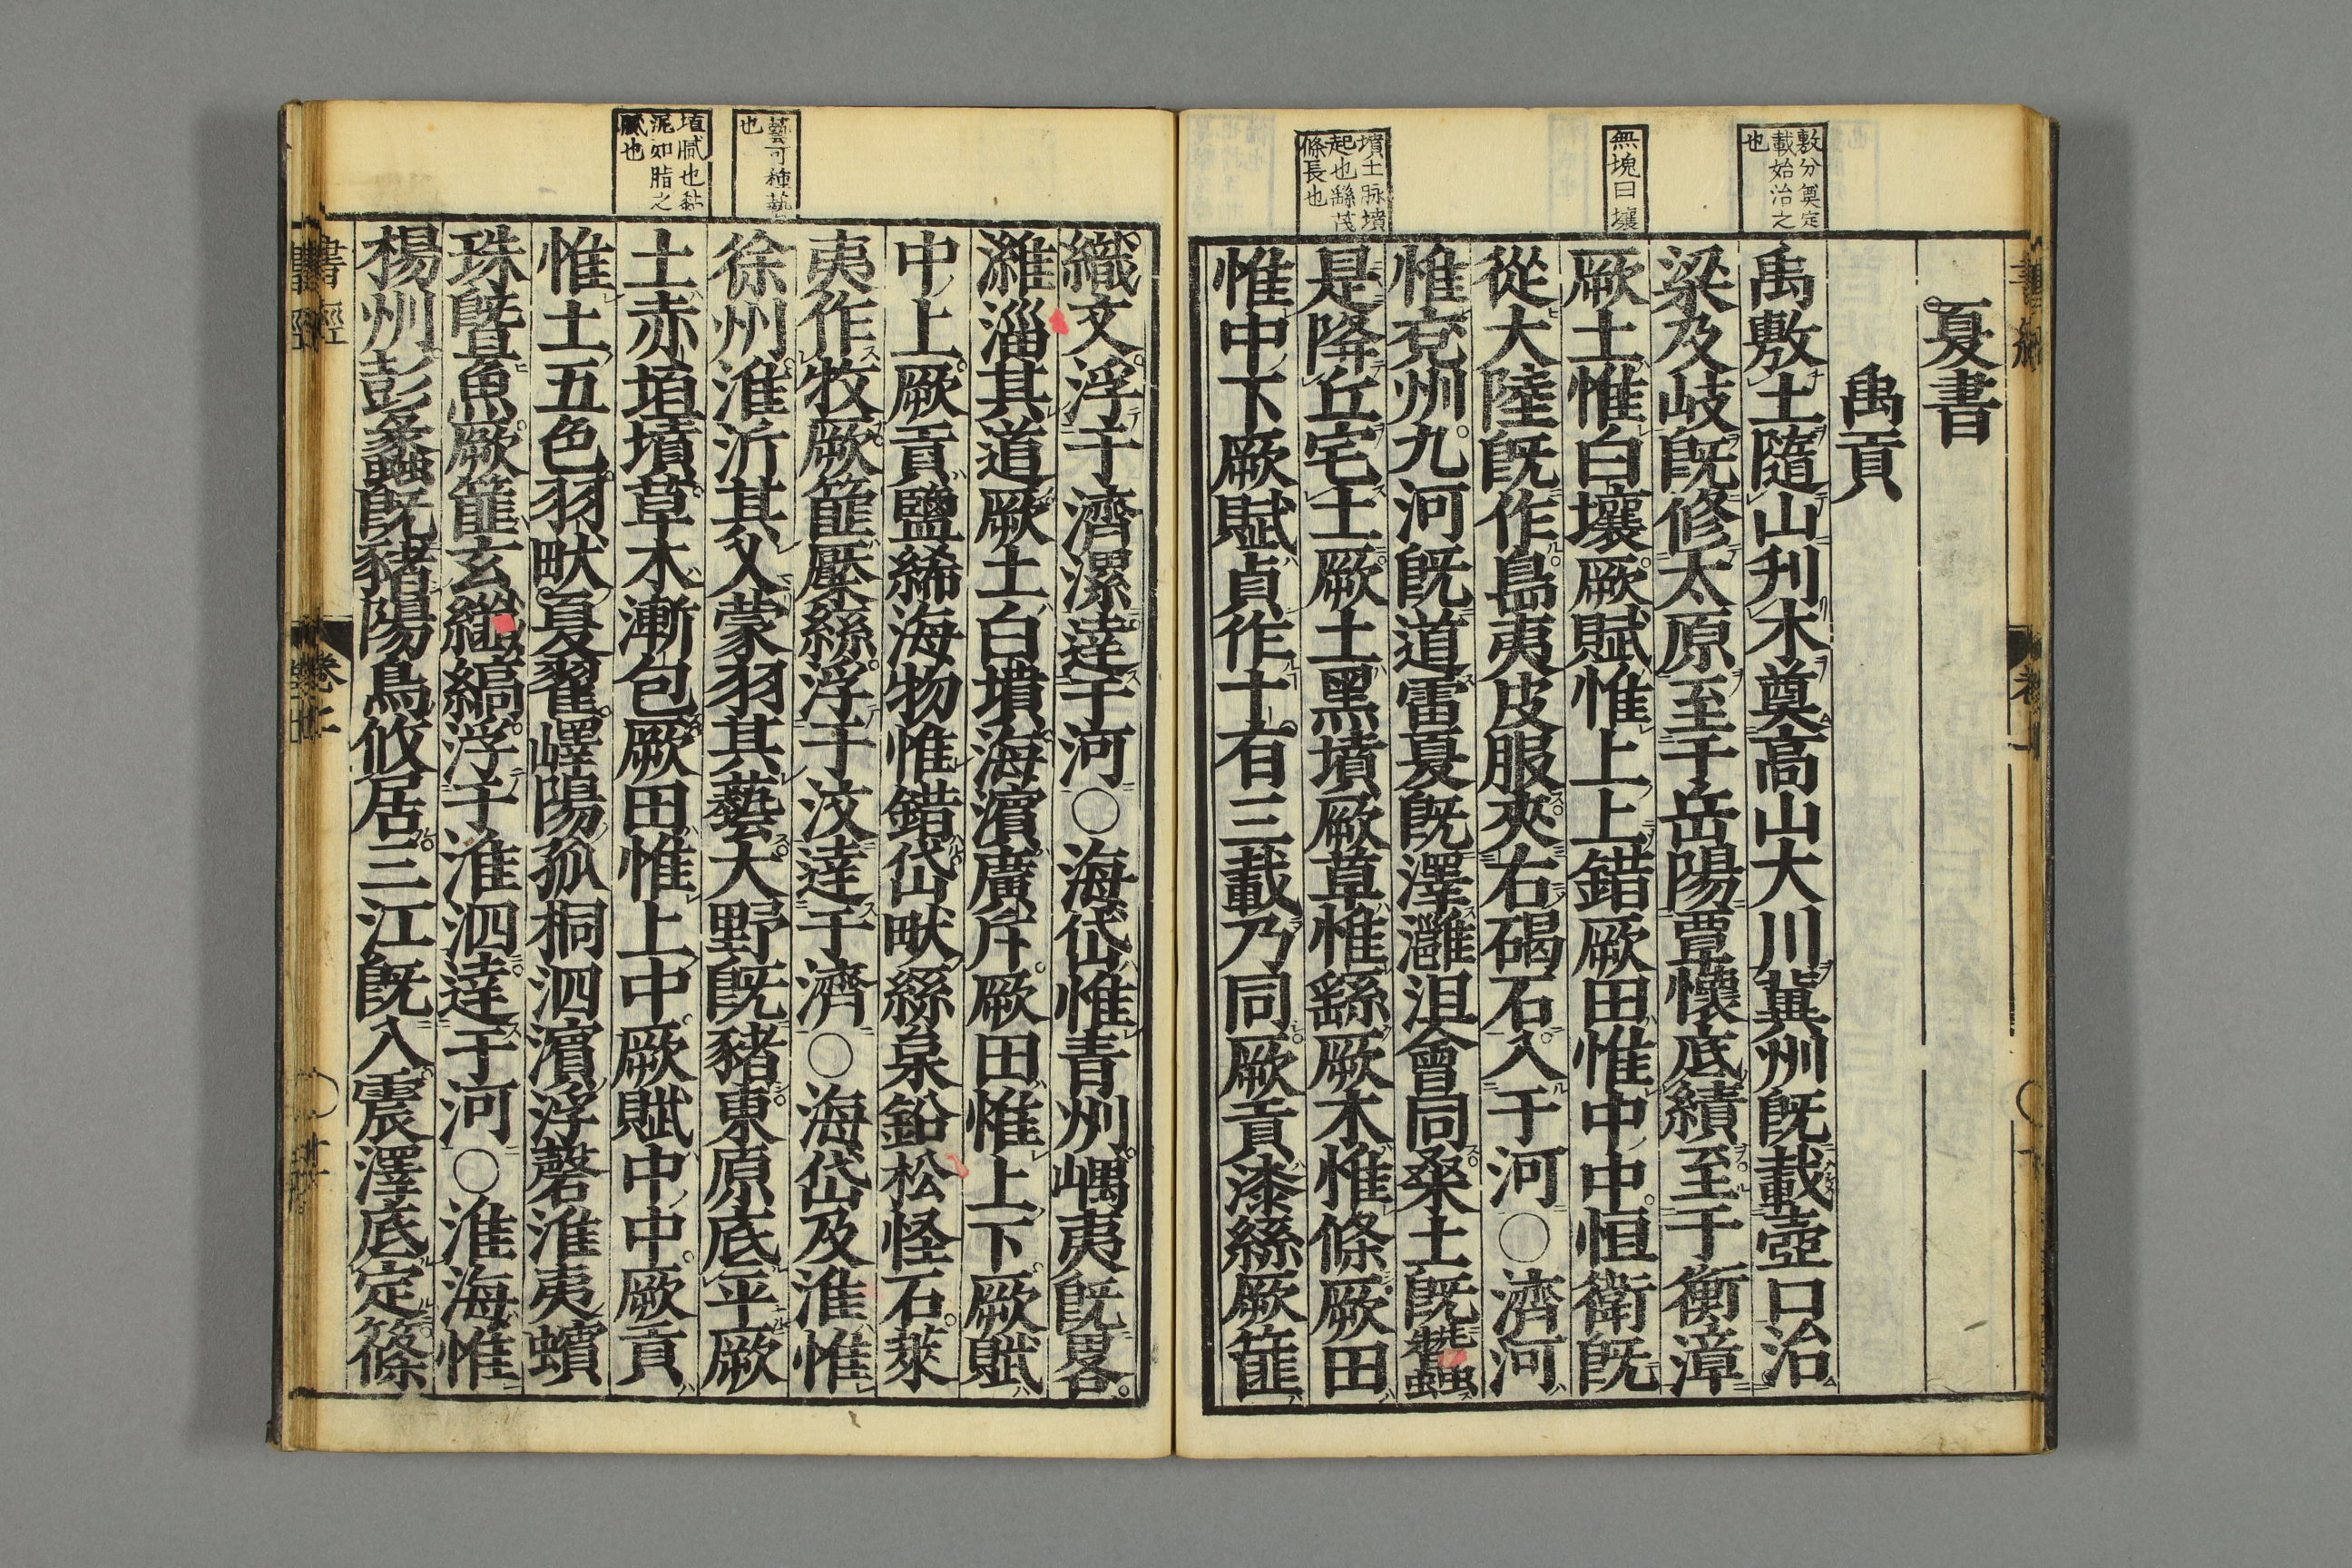 敷分奠定
載始治之
也
無塊曰壤
墳土脉墳
起也繇茂
條長也
夏書
禹貢
禹敷土隨山刋木奠高山大川冀州旣載壺口治
梁及岐旣修太原至于岳陽覃懷底績至于衡漳
厥土惟白壤厥賦惟上上錯厥田惟中中恒衛旣
從大陸旣作島夷皮服夾右碣石入于河〇濟河
惟兗州九河旣道雷夏旣澤灉沮會同桑土旣蠶
是降丘宅土厥土黑墳厥草惟繇厥木惟條厥田
惟中下厥賦貞作十有三載乃同厥貢漆絲厥篚
藝可種藝
也
埴膩也黏
泥如脂之
膩也
織文浮于濟漯達于河〇海岱惟青州嵎夷旣畧
濰淄其道厥土白墳海濵廣斥厥田惟上下厥賦
中上厥貢鹽絺海物惟錯岱畎絲枲鉛松怪石萊
夷作牧厥篚檿絲浮于汶達于濟〇海岱及淮惟
徐州淮沂其乂蒙羽其藝大野旣豬東原底平厥
土赤埴墳草木漸包厥田惟上中厥賦中中厥貢
惟土五色羽畎夏翟嶧陽孤桐泗濵浮磬淮夷蠙
珠曁魚厥篚玄纖縞浮于淮泗達于河〇淮海惟
楊州彭蠡旣豬陽鳥攸居三江旣入震澤底定篠
書經